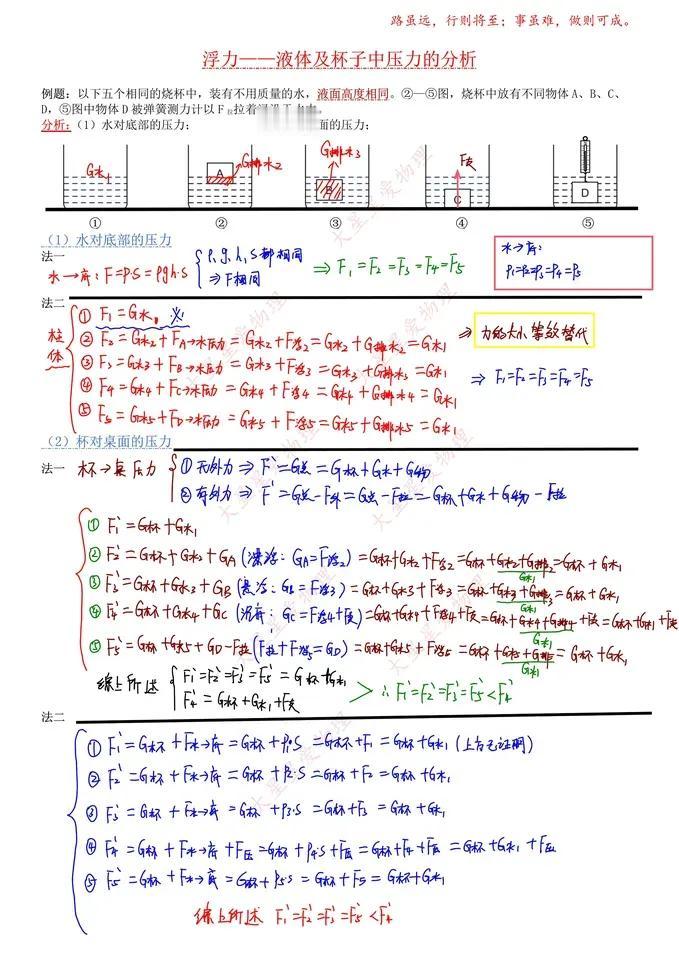 路虽远，行则将至；事虽难，做则可成。
浮力——液体及杯子中压力的分析
例题：以下五个相同的烧杯中，装有不用质量的水，液面高度相同。②—⑤图，烧杯中放有不同物体A、B、C、
D，⑤图中物体D被弹簧测力计以F拉拉着
分析：（1）水对底部的压力； 面的压力；
G水1 A G排水2 B G排水3 F支 C D
① ② ③ ④ ⑤
（1）水对底部的压力
法一
水→底：F=P·S=ρgh·S { ρ,g,h,S都相同 ⇒F相同 ⇒ F1=F2=F3=F4=F5
水→底：
P1=P2=P3=P4=P5
法二
柱体
① F1=G水1
② F2=G水2+FA→水压力=G水2+F浮2=G水2+G排水2=G水1
⇒ 力的大小等效替代
③ F3=G水3+FB→水压力=G水3+F浮3=G水3+G排水3=G水1
④ F4=G水4+FC→水压力=G水4+F浮4=G水4+G排水4=G水1
⇒ F1=F2=F3=F4=F5
⑤ F5=G水5+FD→水压力=G水5+F浮5=G水5+G排水5=G水1
（2）杯对桌面的压力
法一 杯→桌压力 { ①无外力⇒F'=G总=G杯+G水+G物
②有外力⇒F'=G总-F外=G总-F拉=G杯+G水+G物-F拉
① F1'=G杯+G水1
② F2'=G杯+G水2+GA(漂浮：GA=F浮2)=G杯+G水2+F浮2=G杯+G水2+G排2=G杯+G水1
G水1
③ F3'=G杯+G水3+GB(悬浮：GB=F浮3)=G杯+G水3+F浮3=G杯+G水3+G排3=G杯+G水1
G水1
④ F4'=G杯+G水4+GC(沉底：GC=F浮4+F支)=G杯+G水4+F浮4+F支=G杯+G水4+G排4+F支=G杯+G水1+F支
G水1
⑤ F5'=G杯+G水5+GD-F拉(F拉+F浮5=GD)=G杯+G水5+F浮5=G杯+G水5+G排5=G杯+G水1
G水1
综上所述 { F1'=F2'=F3'=F5'=G杯+G水1
F4'=G杯+G水1+F支 > ∴F1'=F2'=F3'=F5'<F4'
法二
① F1'=G杯+F水→底=G杯+P1·S=G杯+F1=G杯+G水1(上方已证明)
② F2'=G杯+F水→底=G杯+P2·S=G杯+F2=G杯+G水1
③ F3'=G杯+F水→底=G杯+P3·S=G杯+F3=G杯+G水1
④ F4'=G杯+F水→底+F压=G杯+P4·S+F压=G杯+F4+F压=G杯+G水1+F压
⑤ F5'=G杯+F水→底=G杯+P5S=G杯+F5=G杯+G水1
综上所述 F1'=F2'=F3'=F5'<F4'
大星星爱物理